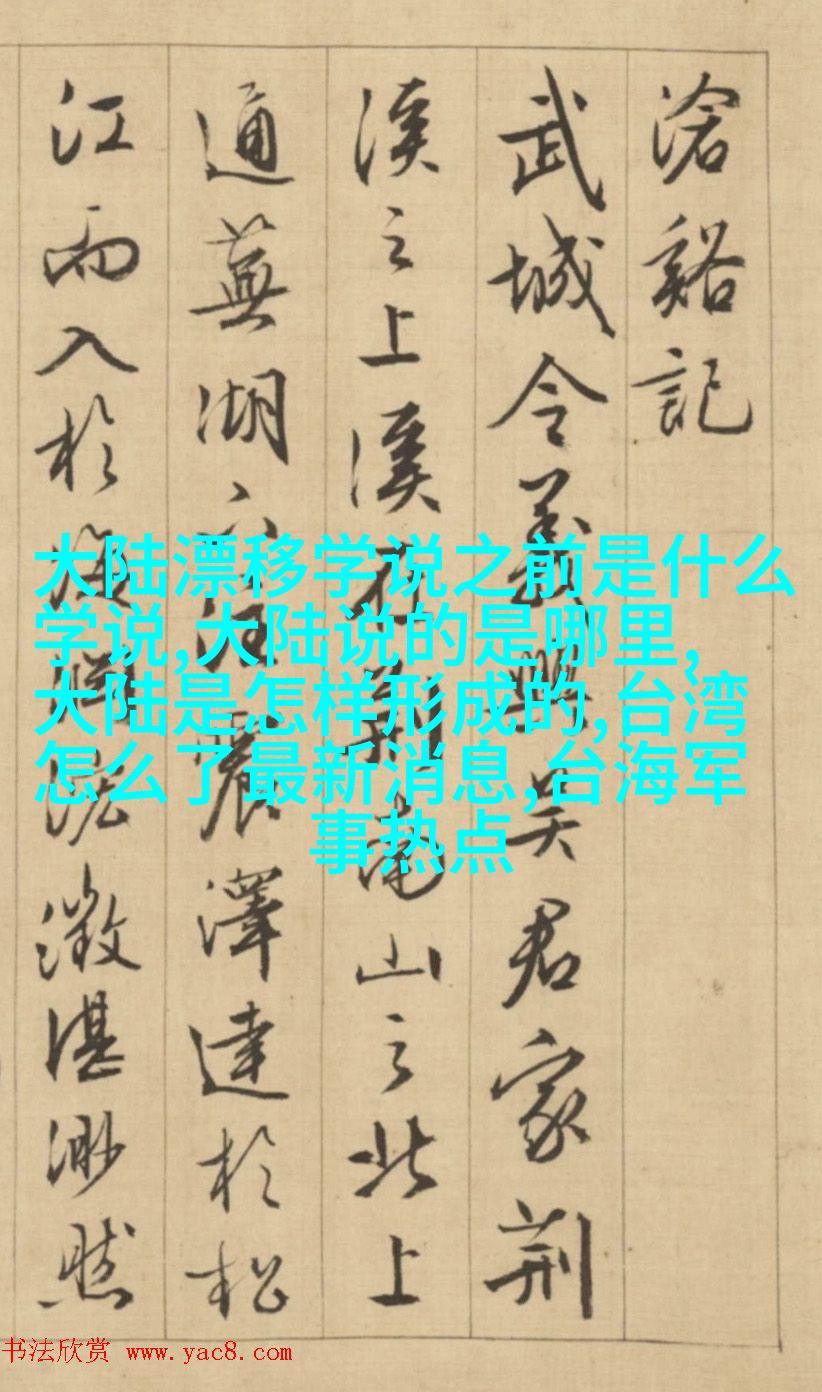 滄谿記
武城令義興吳君家荊
溪之上溪在荊南山之北上
通蕪湖下注震澤達於松
江而入於海泓澂湛渺然
大陆漂移学说之前是什么
学说,大陆说的是哪里,
大陆是怎样形成的,台湾
怎么了最新消息,台海军
事热点
书法欣赏 www.yac8.com